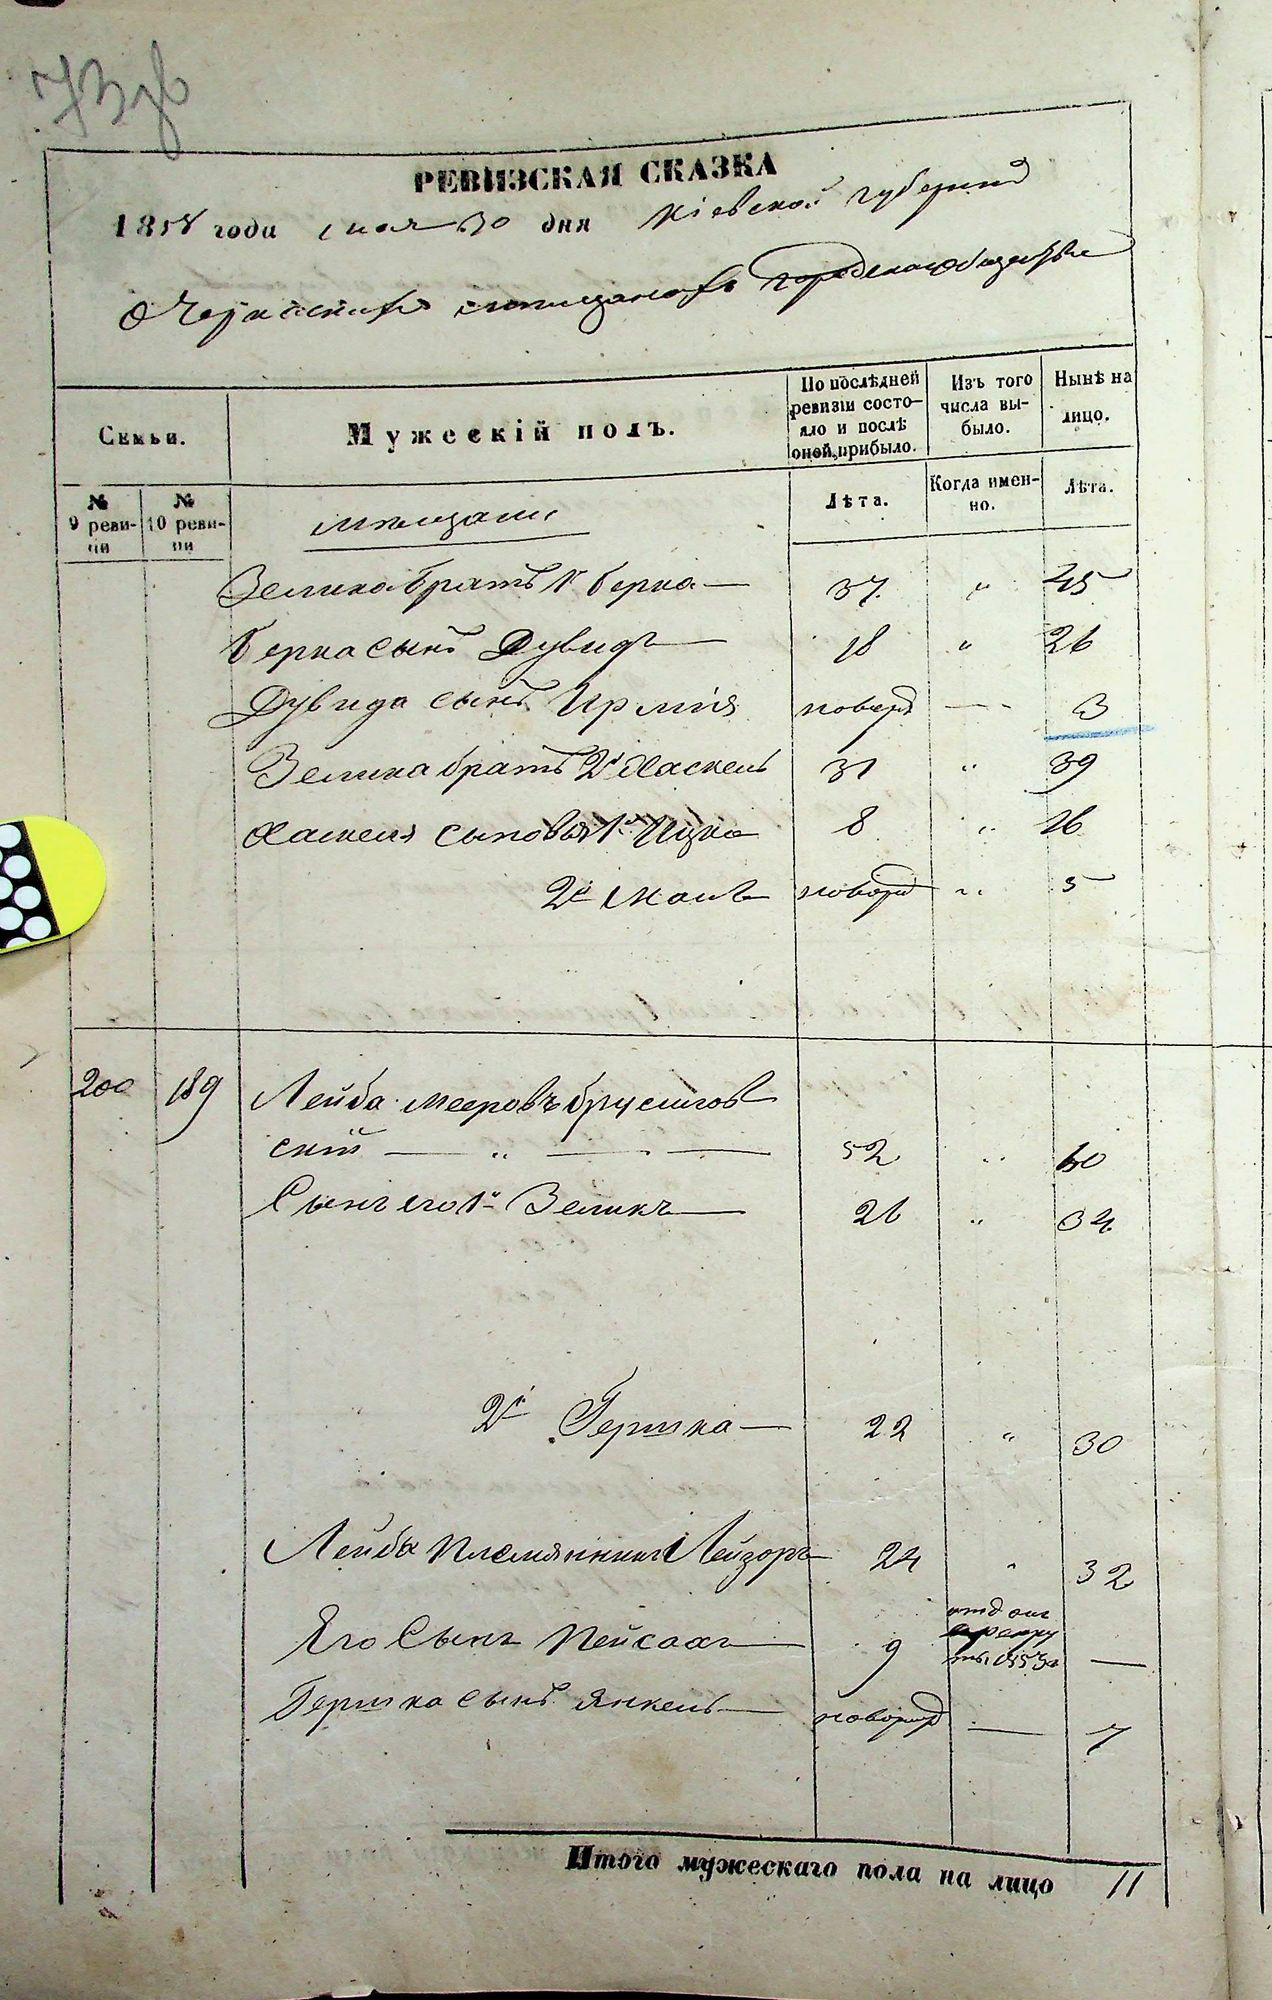 73 зв
РЕВИЗСКАЯ СКАЗКА
1858 года мая 30 дня Кіевской губерніи
О Черкасскихъ мѣщанахъ городскаго общества
Семьи.
Мужескій полъ.
По послѣдней ревизіи состояло и послѣ оной прибыло.
Изъ того числа выбыло.
Ныне на лицо.
№ 9 ревизіи
№ 10 ревизіи
Лѣта.
Когда именно.
Лѣта.
мѣщане
Зелика братъ 1й Берко — 37 " 45
Берка сынъ Дувидъ 18 " 26
Дувида сынъ Ирмія новорд — 3
Зелика братъ 2й Хаскель 31 " 39
Хаскеля сыновья 1й Ицко 8 " 16
2й Мошъ новорд " 5
200 189 Лейба Мееровъ Брусилов
скій — " — 52 " 60
Сынъ его 1й Зеликъ — 26 " 34
2й Гершко — 22 " 30
Лейбы племянникъ Лейзоръ 24 " 32
Его Сынъ Пейсахъ — 9 отд вмг рекру ты 1853г —
Гершка сынъ Янкель — новорожд — 7
Итого мужескаго пола на лицо 11